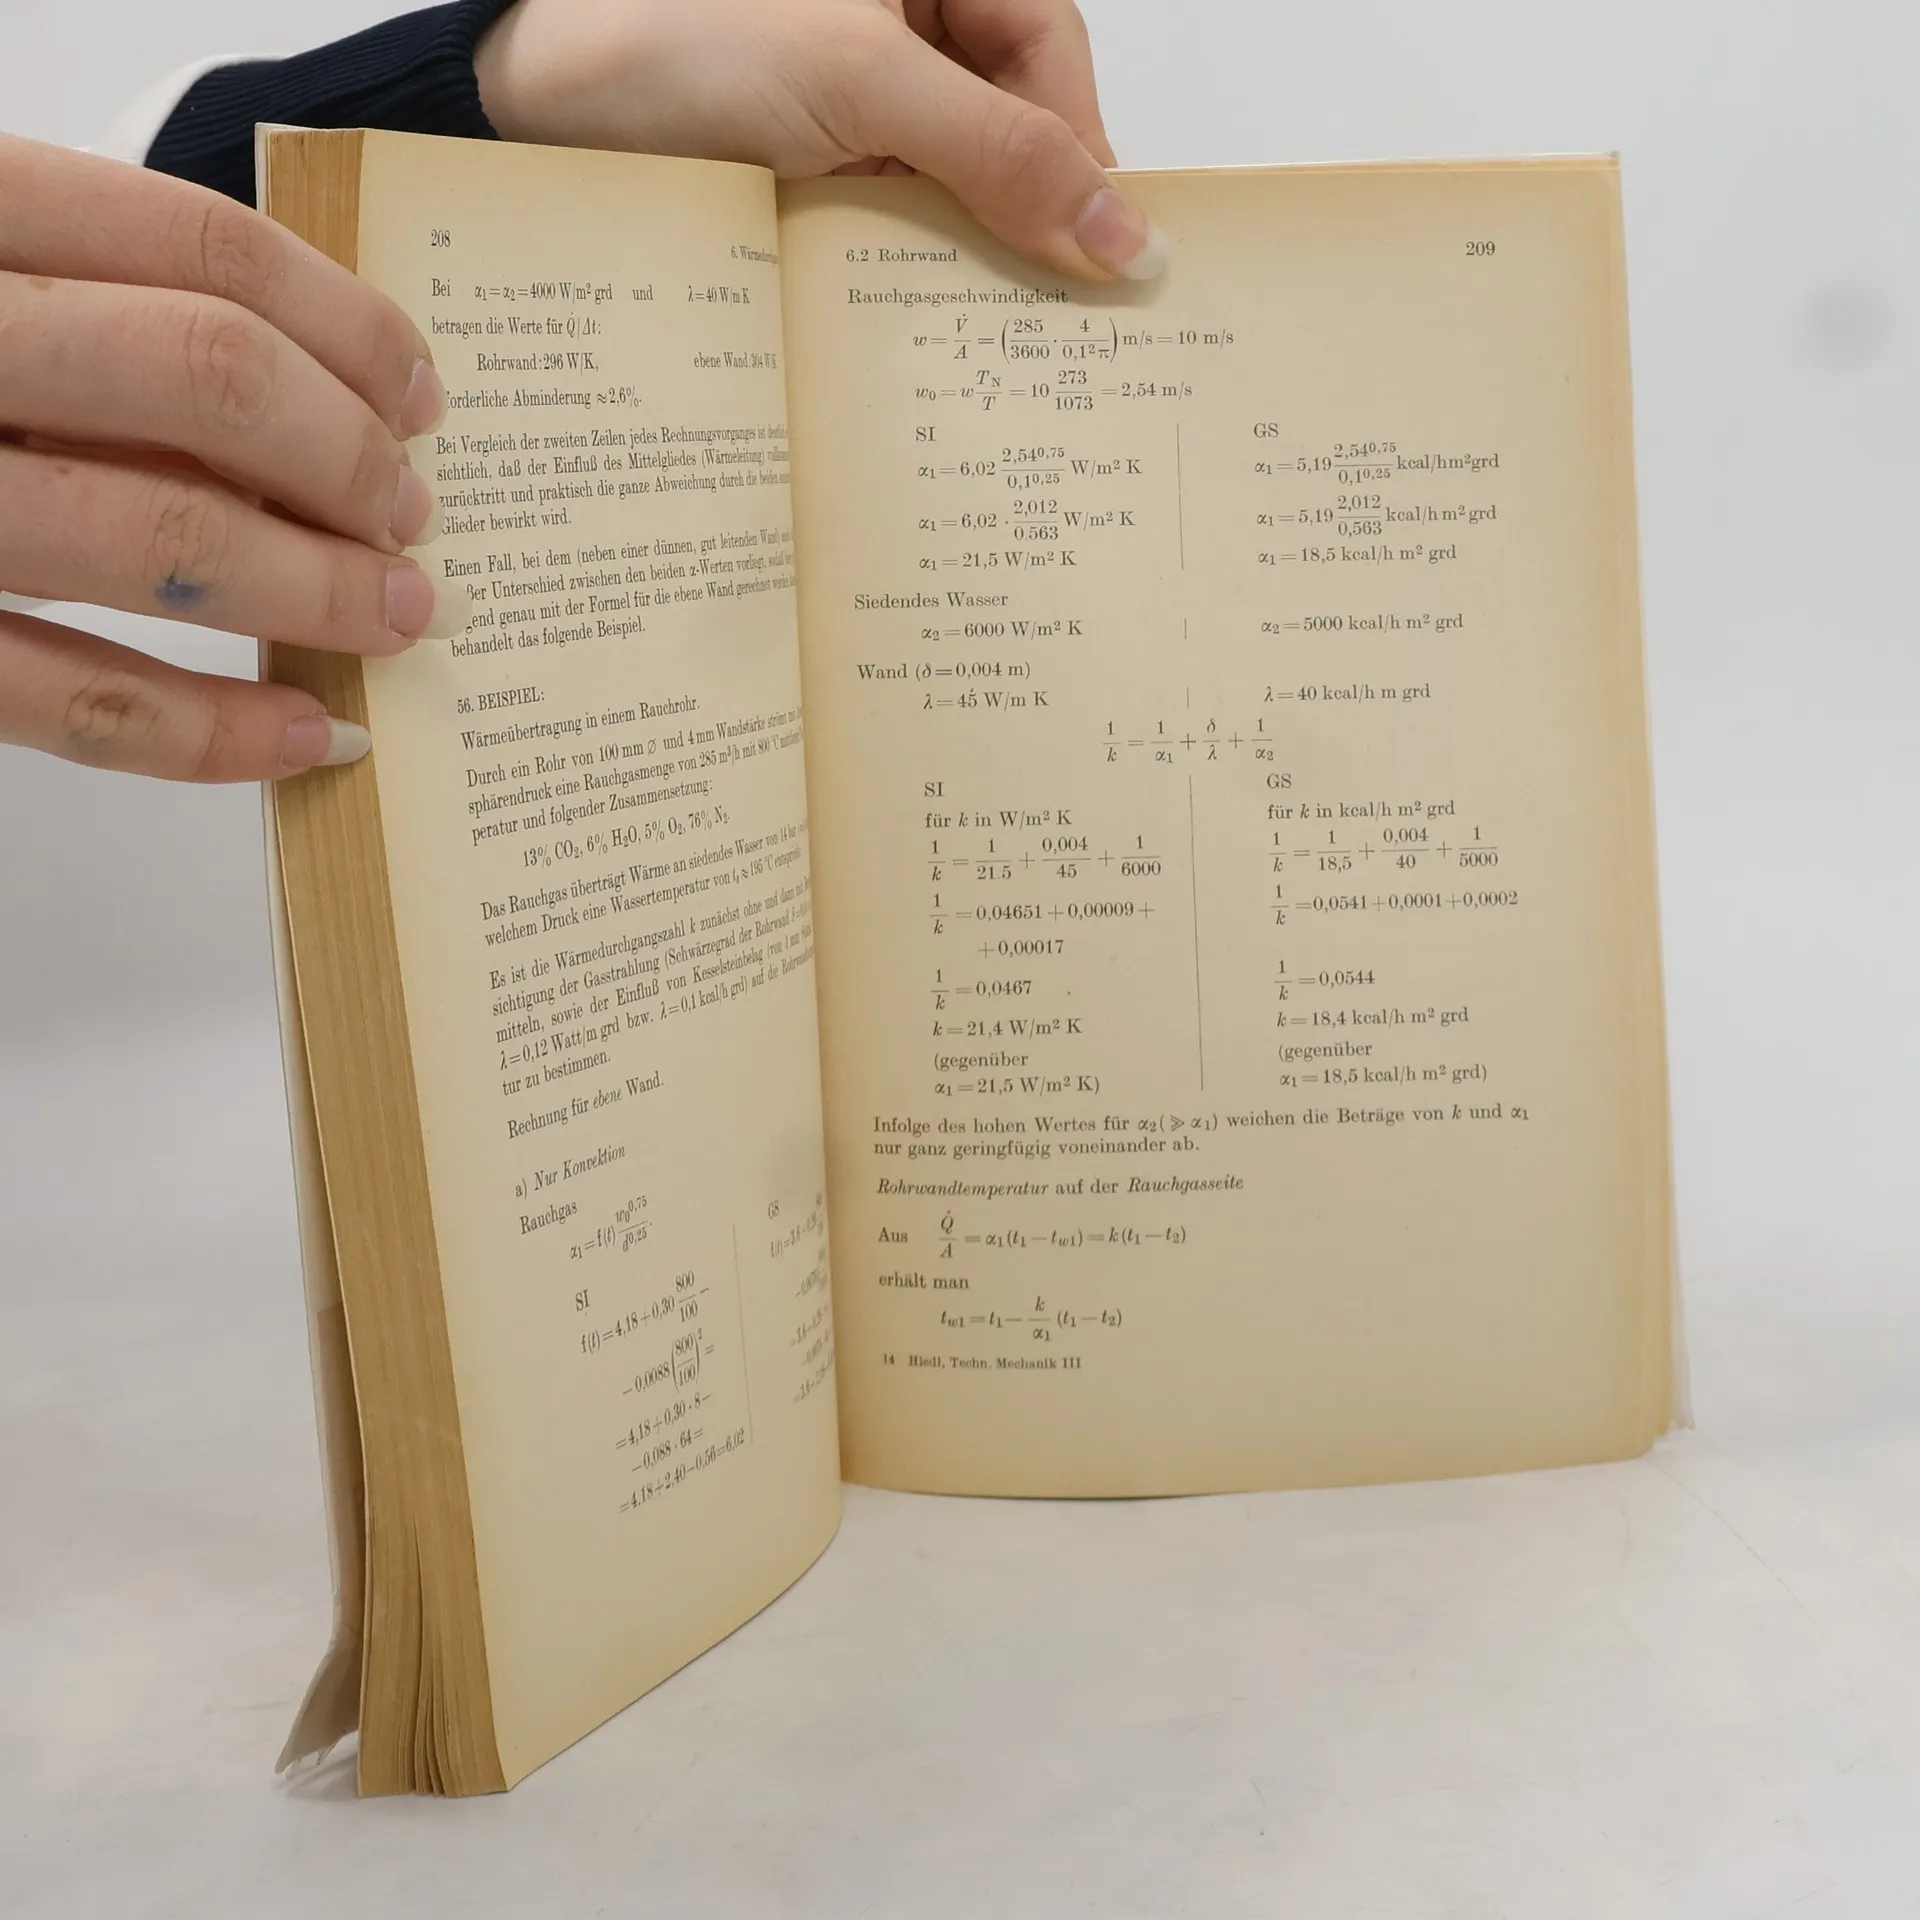 208
Bei α₁=α₂=4000 W/m² grd und λ=40 W/m K
betragen die Werte für Q̇/Δt:
Rohrwand: 296 W/K, ebene Wand: 304 W/K
forderliche Abminderung ≈2,6%.
Bei Vergleich der zweiten Zeilen jedes Rechnungsvorganges ist
sichtlich, daß der Einfluß des Mittelgliedes (Wärmeleitung)
zurücktritt und praktisch die ganze Abweichung durch die beiden
Glieder bewirkt wird.
Einen Fall, bei dem (neben einer dünnen, gut leitenden Wand)
Unterschied zwischen den beiden α-Werten vorliegt,
genau mit der Formel für die ebene Wand gerechnet werden
behandelt das folgende Beispiel.
56. BEISPIEL:
Wärmeübertragung in einem Rauchrohr.
Durch ein Rohr von 100 mm ∅ und 4 mm Wandstärke strömt
sphärendruck eine Rauchgasmenge von 285 m³/h mit 800 °C
peratur und folgender Zusammensetzung:
13% CO₂, 6% H₂O, 5% O₂, 76% N₂.
Das Rauchgas überträgt Wärme an siedendes Wasser von 14 bar
welchem Druck eine Wassertemperatur von tₛ≈195 °C entspricht.
Es ist die Wärmedurchgangszahl k zunächst ohne und dann mit
sichtigung der Gasstrahlung (Schwärzegrad der Rohrwand
mitteln, sowie der Einfluß von Kesselsteinbelag (von 1 mm
λ=0,12 Watt/m grd bzw. λ=0,1 kcal/h grd) auf die
tur zu bestimmen.
Rechnung für ebene Wand.
a) Nur Konvektion
Rauchgas
α₁=f(t) w₀^0,75/d^0,25.
SI GS
f(t)=4,18+0,30 800/100 −
−0,0088 (800/100)² =
=4,18+0,30·8−
−0,088·64=
=4,18+2,40−0,56=6,02
6.2 Rohrwand 209
Rauchgasgeschwindigkeit
w = V̇/A = (285/3600 · 4/0,1²π) m/s = 10 m/s
w₀ = w T_N/T = 10 273/1073 = 2,54 m/s
SI GS
α₁=6,02 2,54^0,75/0,1^0,25 W/m² K α₁=5,19 2,54^0,75/0,1^0,25 kcal/hm²grd
α₁=6,02 · 2,012/0,563 W/m² K α₁=5,19 2,012/0,563 kcal/h m² grd
α₁=21,5 W/m² K α₁=18,5 kcal/h m² grd
Siedendes Wasser
α₂=6000 W/m² K α₂=5000 kcal/h m² grd
Wand (δ=0,004 m)
λ=45 W/m K λ=40 kcal/h m grd
1/k = 1/α₁ + δ/λ + 1/α₂
SI GS
für k in W/m² K für k in kcal/h m² grd
1/k = 1/21.5 + 0,004/45 + 1/6000 1/k = 1/18,5 + 0,004/40 + 1/5000
1/k =0,04651+0,00009+ 1/k =0,0541+0,0001+0,0002
+0,00017
1/k =0,0467 1/k =0,0544
k=21,4 W/m² K k=18,4 kcal/h m² grd
(gegenüber (gegenüber
α₁=21,5 W/m² K) α₁=18,5 kcal/h m² grd)
Infolge des hohen Wertes für α₂(≫α₁) weichen die Beträge von k und α₁
nur ganz geringfügig voneinander ab.
Rohrwandtemperatur auf der Rauchgasseite
Aus Q̇/A =α₁(t₁−t_w1)=k(t₁−t₂)
erhält man
t_w1=t₁− k/α₁ (t₁−t₂)
14 Hiedl, Techn. Mechanik III